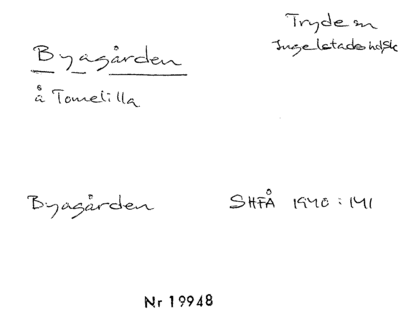 Tryde sn
Ingelstads hd Sk
Byagården
å Tomelilla
Byagården SHFÅ 1940:141
Nr 19948